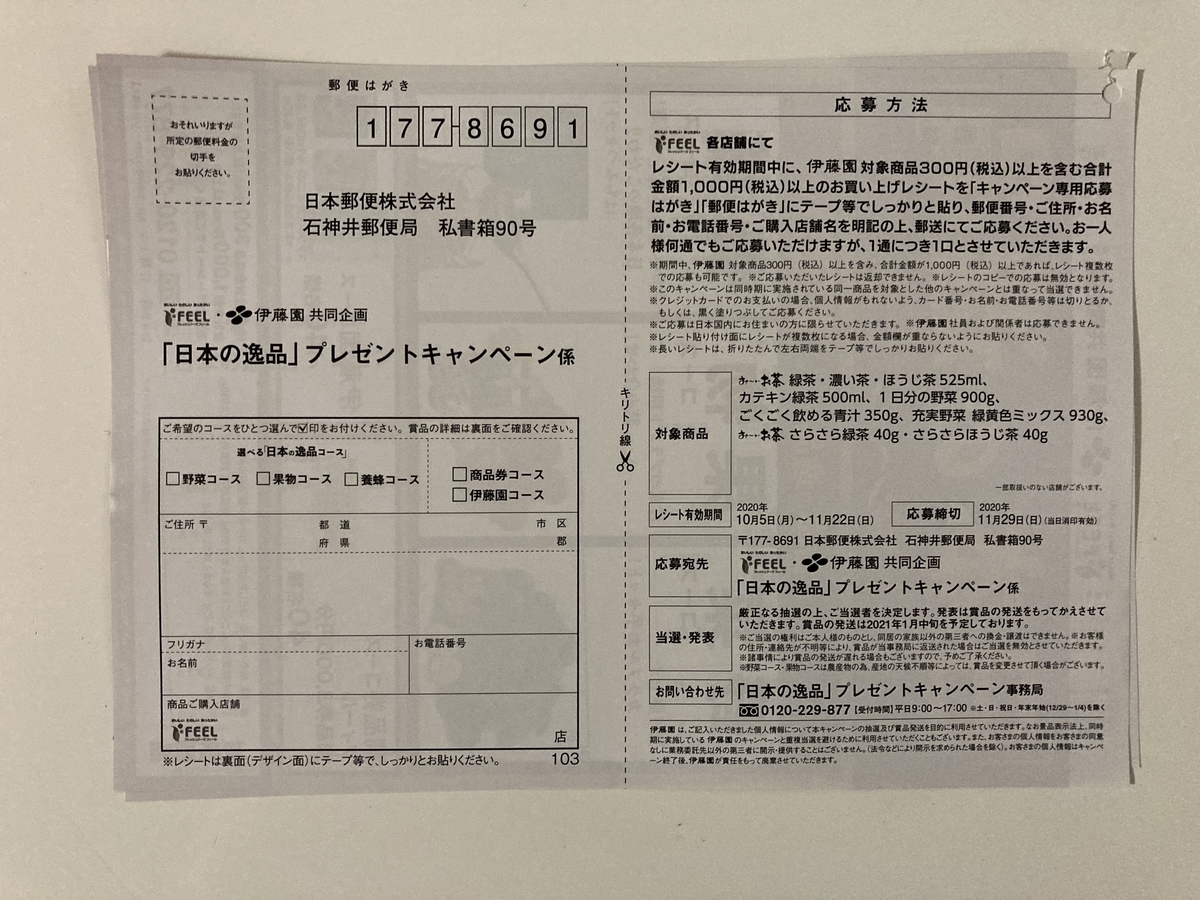 郵便はがき
おそれいりますが
所定の郵便料金の
切手を
お貼りください。
177-8691
日本郵便株式会社
石神井郵便局 私書箱90号
FEEL・伊藤園 共同企画
「日本の逸品」プレゼントキャンペーン係
ご希望のコースをひとつ選んで☑印をお付けください。賞品の詳細は裏面をご確認ください。
選べる「日本の逸品コース」
□野菜コース □果物コース □養蜂コース
□商品券コース
□伊藤園コース
ご住所 〒 都 道 市 区
府 県 郡
フリガナ
お名前
お電話番号
商品ご購入店舗
FEEL
店
※レシートは裏面(デザイン面)にテープ等で、しっかりとお貼りください。 103
キリトリ線
応募方法
FEEL 各店舗にて
レシート有効期間中に、伊藤園 対象商品300円(税込)以上を含む合計
金額1,000円(税込)以上のお買い上げレシートを「キャンペーン専用応募
はがき」「郵便はがき」にテープ等でしっかりと貼り、郵便番号・ご住所・お名
前・お電話番号・ご購入店舗名を明記の上、郵送にてご応募ください。お一人
様何通でもご応募いただけますが、1通につき1口とさせていただきます。
※期間中、伊藤園 対象商品300円(税込)以上を含み、合計金額が1,000円(税込)以上であれば、レシート複数枚
での応募も可能です。※ご応募いただいたレシートは返却できません。※レシートのコピーでの応募は無効となります。
※このキャンペーンは同時期に実施されている同一商品を対象とした他のキャンペーンとは重なって当選できません。
※クレジットカードでのお支払いの場合、個人情報がもれないよう、カード番号・お名前・お電話番号等は切りとるか、
もしくは、黒く塗りつぶしてご応募ください。
※ご応募は日本国内にお住まいの方に限らせていただきます。※伊藤園社員および関係者は応募できません。
※レシート貼り付け面にレシートが複数枚になる場合、金額欄が重ならないようにお貼りください。
※長いレシートは、折りたたんで左右両端をテープ等でしっかりお貼りください。
対象商品
お〜いお茶 緑茶・濃い茶・ほうじ茶 525ml、
カテキン緑茶 500ml、1日分の野菜 900g、
ごくごく飲める青汁 350g、充実野菜 緑黄色ミックス 930g、
お〜いお茶 さらさら緑茶 40g・さらさらほうじ茶 40g
一部取扱いのない店舗がございます。
レシート有効期間
2020年
10月5日(月)〜11月22日(日)
応募締切
2020年
11月29日(日)(当日消印有効)
応募宛先
〒177-8691 日本郵便株式会社 石神井郵便局 私書箱90号
FEEL・伊藤園 共同企画
「日本の逸品」プレゼントキャンペーン係
当選・発表
厳正なる抽選の上、ご当選者を決定します。発表は賞品の発送をもってかえさせて
いただきます。賞品の発送は2021年1月中旬を予定しております。
※ご当選の権利はご本人様のものとし、同居の家族以外の第三者への換金・譲渡はできません。※お客様
の住所・連絡先が不明等により、賞品が当事務局に返送された場合はご当選を無効とさせていただきます。
※諸事情により賞品の発送が遅れる場合もございますので、予めご了承ください。
※野菜コース・果物コースは農産物の為、産地の天候不順等によっては、賞品を変更させて頂く場合がございます。
お問い合わせ先
「日本の逸品」プレゼントキャンペーン事務局
0120-229-877【受付時間】平日9:00〜17:00 ※土・日・祝日・年末年始(12/29〜1/4)を除く
伊藤園 は、ご記入いただきました個人情報について本キャンペーンの抽選及び賞品発送を目的に利用させていただきます。なお景品表示法上、同時
期に実施している 伊藤園 のキャンペーンと重複当選を避けるために利用させていただくこともございます。また、お客さまの個人情報をお客さまの同意
なしに業務委託先以外の第三者に開示・提供することはございません。(法令などにより開示を求められた場合を除く)。お客さまの個人情報はキャンペ
ーン終了後、伊藤園が責任をもって廃棄させていただきます。